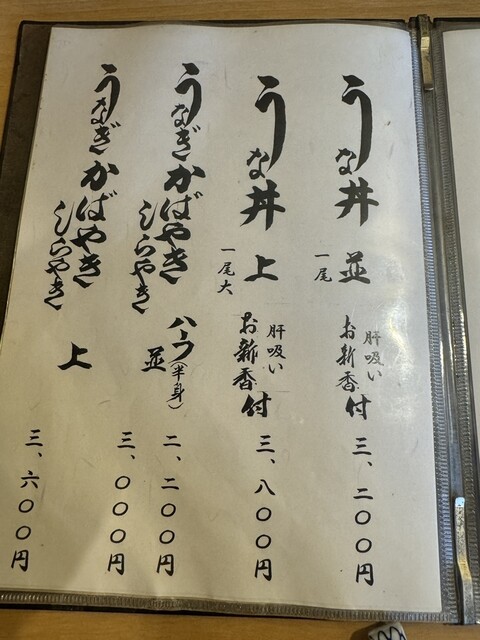 うな丼 並 一尾 肝吸い お新香付 三、二〇〇円
うな丼 上 一尾大 肝吸い お新香付 三、八〇〇円
うなぎかばやき しらやき ハーフ(半身) 二、二〇〇円
並 三、〇〇〇円
うなぎかばやき しらやき 上 三、六〇〇円